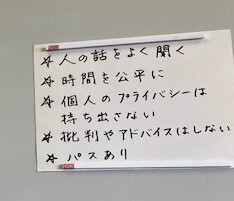 ☆ 人の話をよく聞く
☆ 時間を公平に
☆ 個人のプライバシーは
持ち出さない
☆ 批判やアドバイスはしない
☆ パスあり